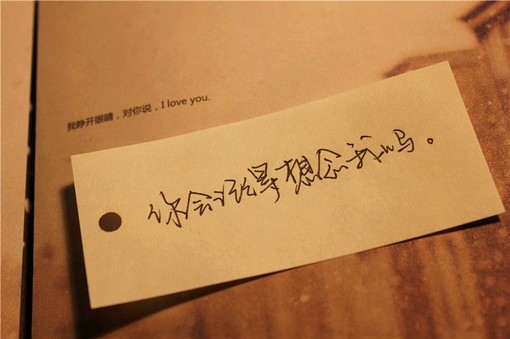 我睁开眼睛，对你说，I love you.
你会以后想念我吗。